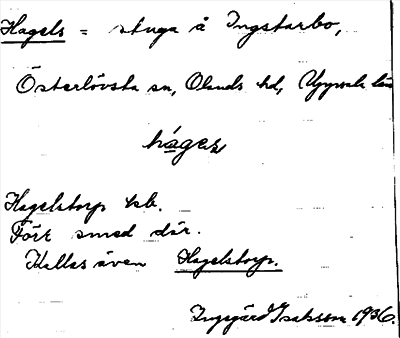 Hagels = stuga å Ingstarbo,
Österlövsta sn, Olands hd, Uppsala län
Hagelstorp ksb.
Förr smed där.
Kallas även Hagelstorp.
Ingegärd Isaksson 1936.